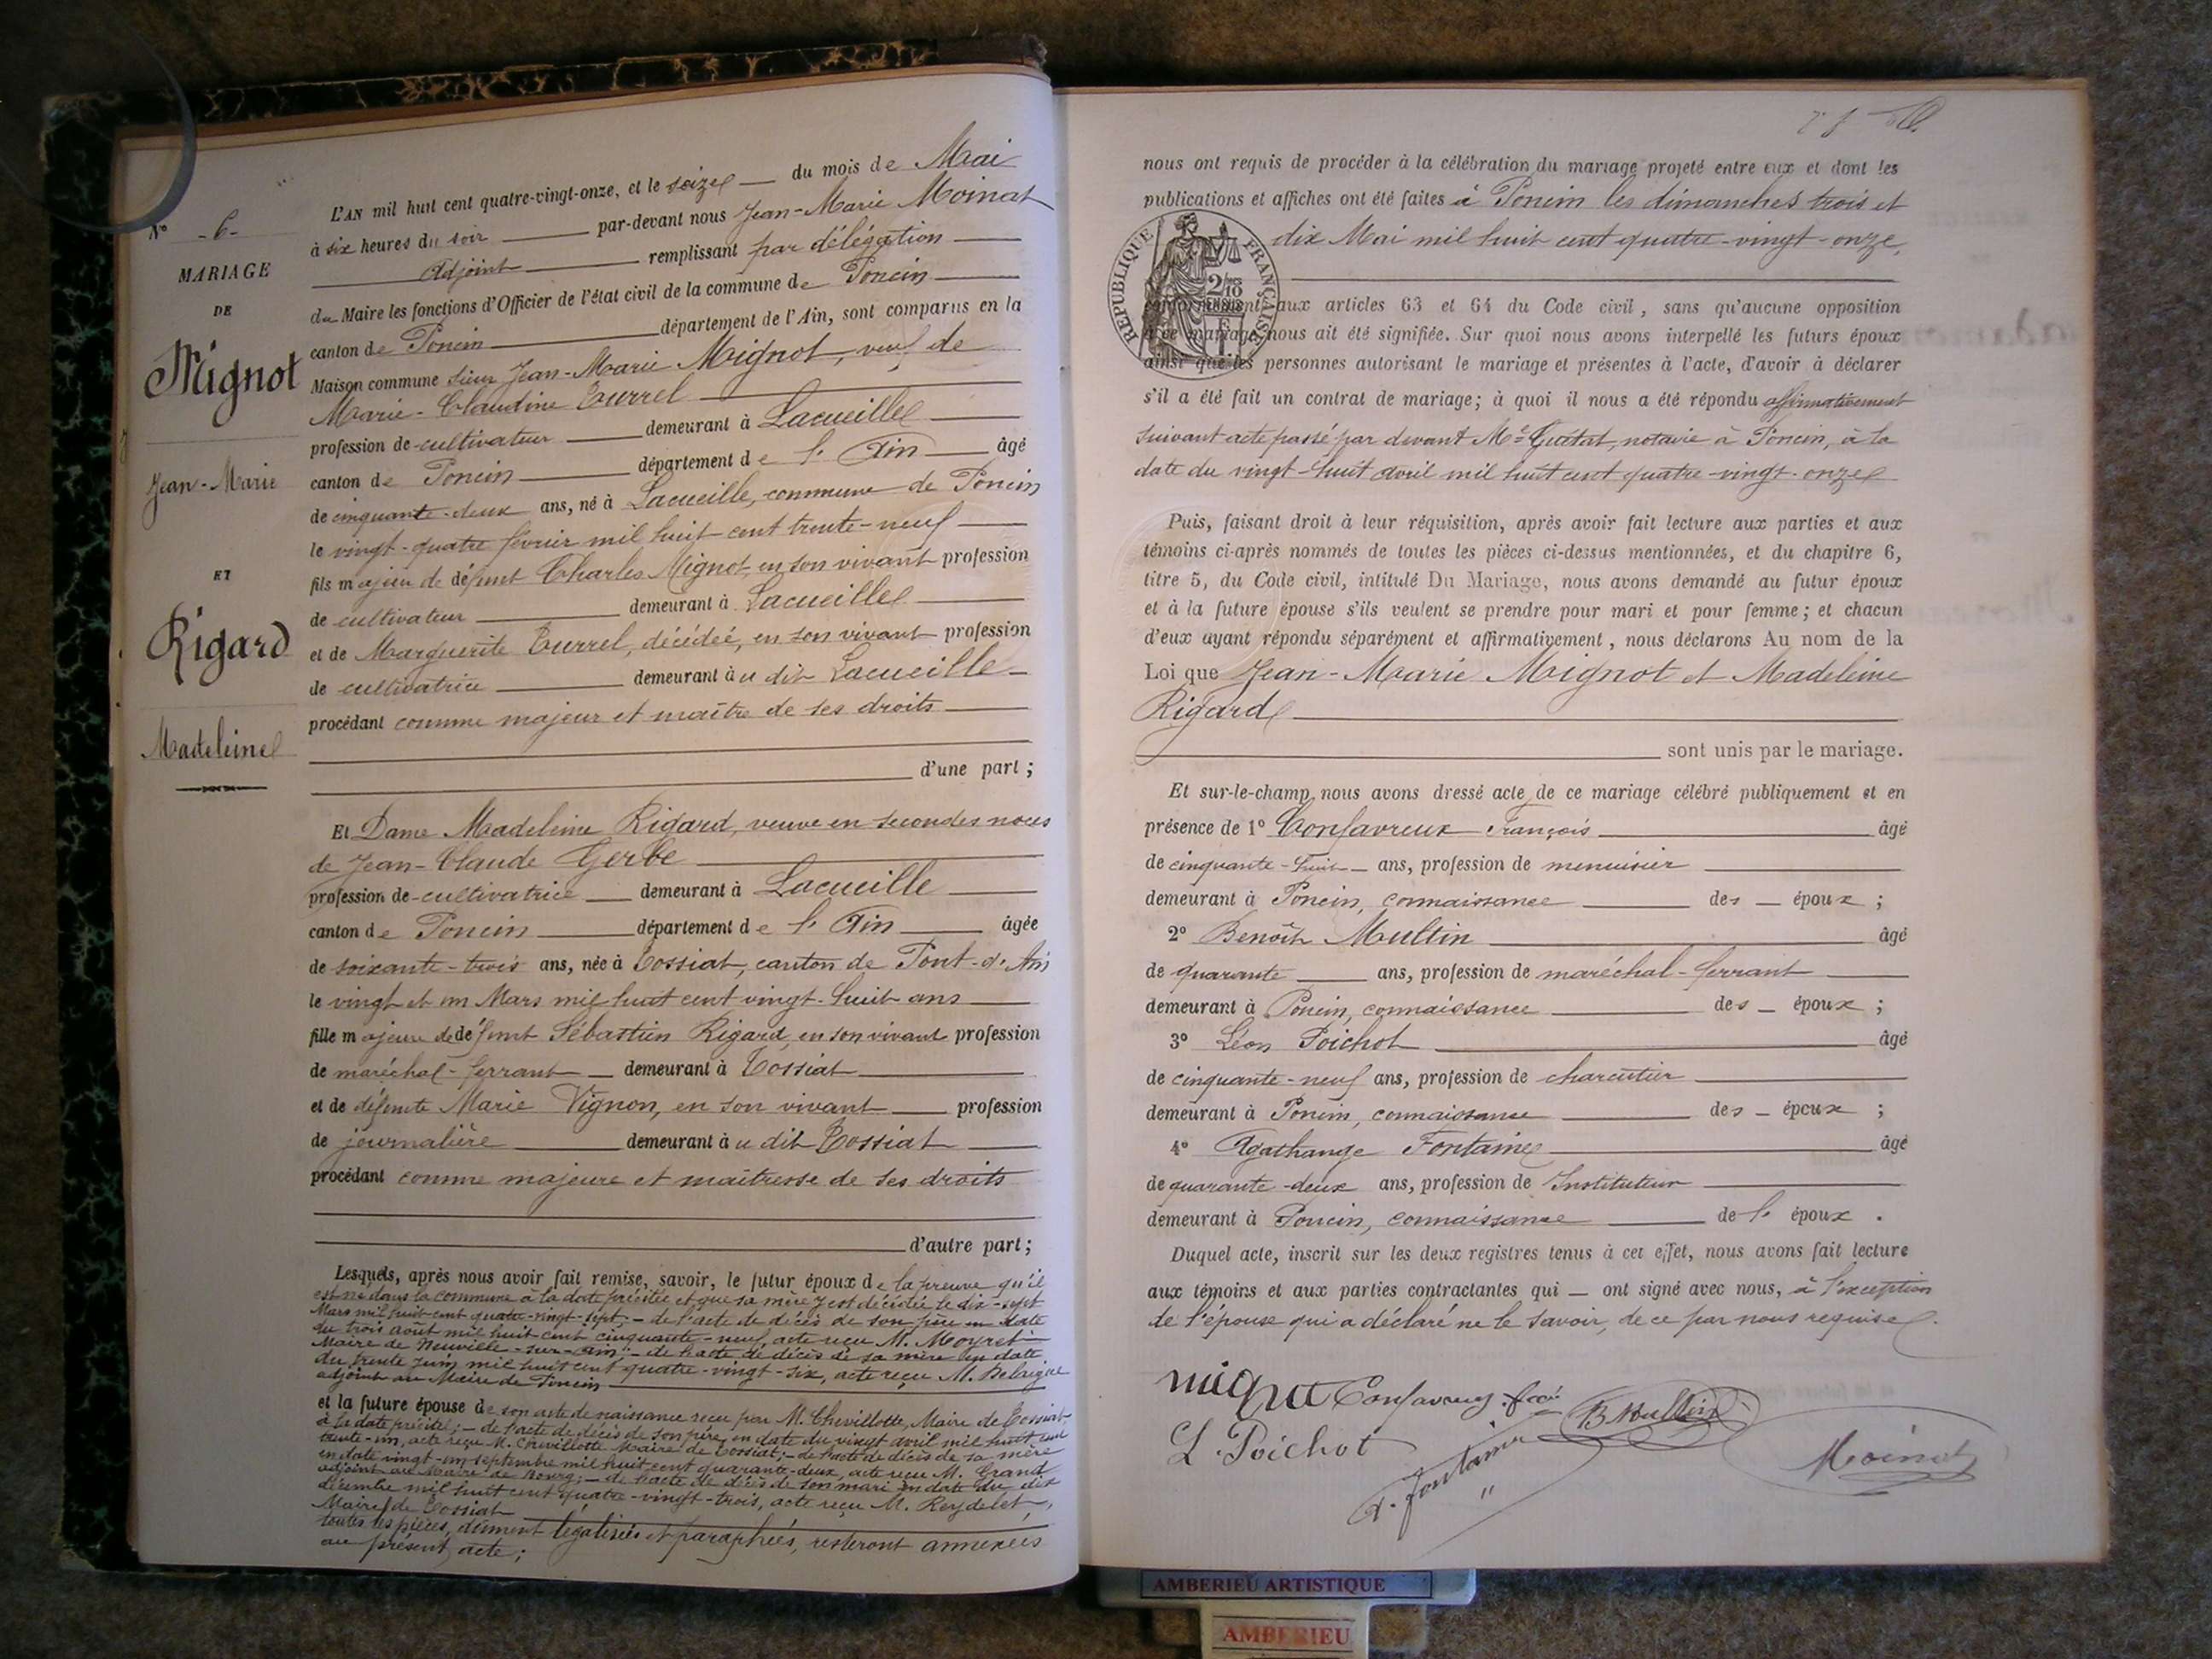 N° -6-
MARIAGE
DE
Mignot
Jean-Marie
ET
Rigard
Madeleine
L'AN mil huit cent quatre-vingt-onze, et le seize du mois de Mai
à six heures du soir par-devant nous Jean-Marie Moinat
Adjoint remplissant par délégation
du Maire les fonctions d'Officier de l'état civil de la commune de Poncin
canton de Poncin département de l'Ain, sont comparus en la
Maison commune sieur Jean-Marie Mignot, veuf de
Marie-Claudine Turrel
profession de cultivateur demeurant à Lacueille
canton de Poncin département de l'Ain âgé
de cinquante-deux ans, né à Lacueille, commune de Poncin
le vingt-quatre février mil huit cent trente-neuf
fils majeur de défunt Charles Mignot, en son vivant profession
de cultivateur demeurant à Lacueille
et de Marguerite Turrel, décédée, en son vivant profession
de cultivatrice demeurant au dit Lacueille
procédant comme majeur et maître de ses droits
d'une part ;
Et Dame Madeleine Rigard, veuve en secondes noces
de Jean-Claude Gerbe
profession de cultivatrice demeurant à Lacueille
canton de Poncin département de l'Ain âgée
de soixante-trois ans, née à Tossiat, canton de Pont-d'Ain
le vingt et un Mars mil huit cent vingt-huit ans
fille majeure de défunt Sébastien Rigard, en son vivant profession
de maréchal-ferrant demeurant à Tossiat
et de défunte Marie Vignon, en son vivant profession
de journalière demeurant au dit Tossiat
procédant comme majeure et maîtresse de ses droits
d'autre part ;
Lesquels, après nous avoir fait remise, savoir, le futur époux de la preuve qu'il
est né dans la commune à la date précitée et que sa mère y est décédée le dix-sept
Mars mil huit cent quatre-vingt-sept; - de l'acte de décès de son père en date
du trois août mil huit cent cinquante-neuf, acte reçu M. Moyret
Maire de Neuville-sur-Ain; - de l'acte de décès de sa mère en date
du trente juin mil huit cent quatre-vingt-six, acte reçu M. Delaigue
adjoint au Maire de Poncin
et la future épouse de son acte de naissance reçu par M. Chevillotte, Maire de Tossiat
à la date précitée; - de l'acte de décès de son père en date du vingt avril mil huit cent
trente-un, acte reçu M. Chevillotte Maire de Tossiat; - de l'acte de décès de sa mère
en date vingt-un septembre mil huit cent quarante-deux, acte reçu M. Grand
adjoint au Maire de Bourg; - de l'acte de décès de son mari en date du dix
décembre mil huit cent quatre-vingt-trois, acte reçu M. Reydelet,
Maire de Tossiat
toutes les pièces, dûment légalisées et paraphées, resteront annexées
au présent acte;
nous ont requis de procéder à la célébration du mariage projeté entre eux et dont les
publications et affiches ont été faites à Poncin les dimanches trois et
dix Mai mil huit cent quatre-vingt-onze,
REPUBLIQUE FRANÇAISE
conformément aux articles 63 et 64 du Code civil, sans qu'aucune opposition
à ce mariage nous ait été signifiée. Sur quoi nous avons interpellé les futurs époux
ainsi que les personnes autorisant le mariage et présentes à l'acte, d'avoir à déclarer
s'il a été fait un contrat de mariage; à quoi il nous a été répondu affirmativement
suivant acte passé par devant Me Guétat, notaire à Poncin, à la
date du vingt-huit avril mil huit cent quatre-vingt-onze
Puis, faisant droit à leur réquisition, après avoir fait lecture aux parties et aux
témoins ci-après nommés de toutes les pièces ci-dessus mentionnées, et du chapitre 6,
titre 5, du Code civil, intitulé Du Mariage, nous avons demandé au futur époux
et à la future épouse s'ils veulent se prendre pour mari et pour femme; et chacun
d'eux ayant répondu séparément et affirmativement, nous déclarons Au nom de la
Loi que Jean-Marie Mignot et Madeleine
Rigard
sont unis par le mariage.
Et sur-le-champ nous avons dressé acte de ce mariage célébré publiquement et en
présence de 1° Confavreux François âgé
de cinquante-huit ans, profession de menuisier
demeurant à Poncin, connaissance des époux ;
2° Benoît Multin âgé
de quarante ans, profession de maréchal-ferrant
demeurant à Poncin, connaissance des époux ;
3° Léon Poichot âgé
de cinquante-neuf ans, profession de charcutier
demeurant à Poncin, connaissance des époux ;
4° Agathange Fontaine âgé
de quarante-deux ans, profession de Instituteur
demeurant à Poncin, connaissance de l'époux .
Duquel acte, inscrit sur les deux registres tenus à cet effet, nous avons fait lecture
aux témoins et aux parties contractantes qui ont signé avec nous, à l'exception
de l'épouse qui a déclaré ne le savoir, de ce par nous requise.
mignot Confavreux fcois B Multin
L Poichot
A. Fontaine
Moinat
AMBERIEU ARTISTIQUE
AMBERIEU